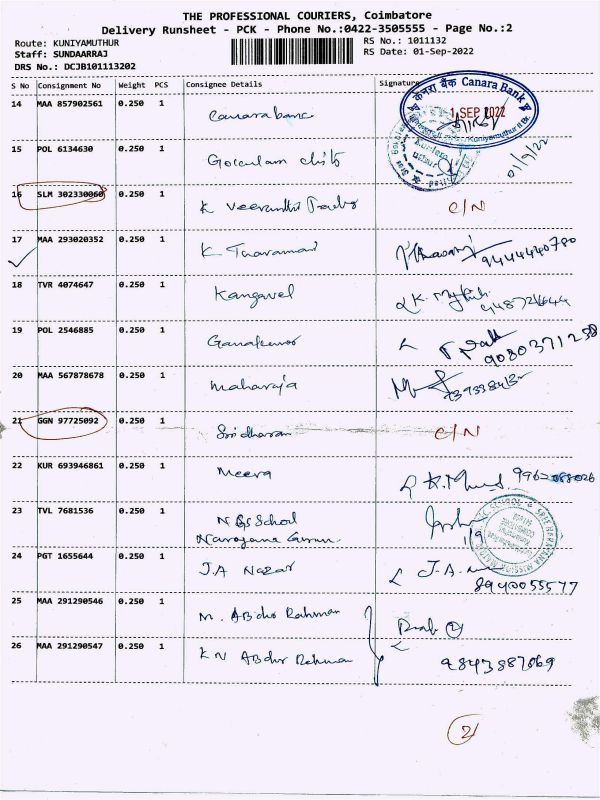 THE PROFESSIONAL COURIERS, Coimbatore
Delivery Runsheet - PCK - Phone No.:0422-3505555 - Page No.:2
Route: KUNIYAMUTHUR
Staff: SUNDAARRAJ
DRS No.: DCJB101113202
RS No.: 1011132
RS Date: 01-Sep-2022
S No Consignment No Weight PCS Consignee Details Signature
14 MAA 857902561 0.250 1 Canara bank
केनरा बैंक Canara Bank
1 SEP 2022
Kuniyamuthur
01/9/22
15 POL 6134630 0.250 1 Gokulam chits
16 SLM 302330060 0.250 1 K C/N
17 MAA 293020352 0.250 1 K 9444440780
18 TVR 4074647 0.250 1 Kangavel
19 POL 2546885 0.250 1 9080371258
20 MAA 567878678 0.250 1 Maharaja
21 GGN 97725092 0.250 1 Sridharan C/N
22 KUR 693946861 0.250 1 Meera
23 TVL 7681536 0.250 1 School
1/9
24 PGT 1655644 0.250 1 J.A Nazar J.A
8940055577
25 MAA 291290546 0.250 1 M. Abdur Rahman
26 MAA 291290547 0.250 1 K N Abdur Rahman 9843887069
21